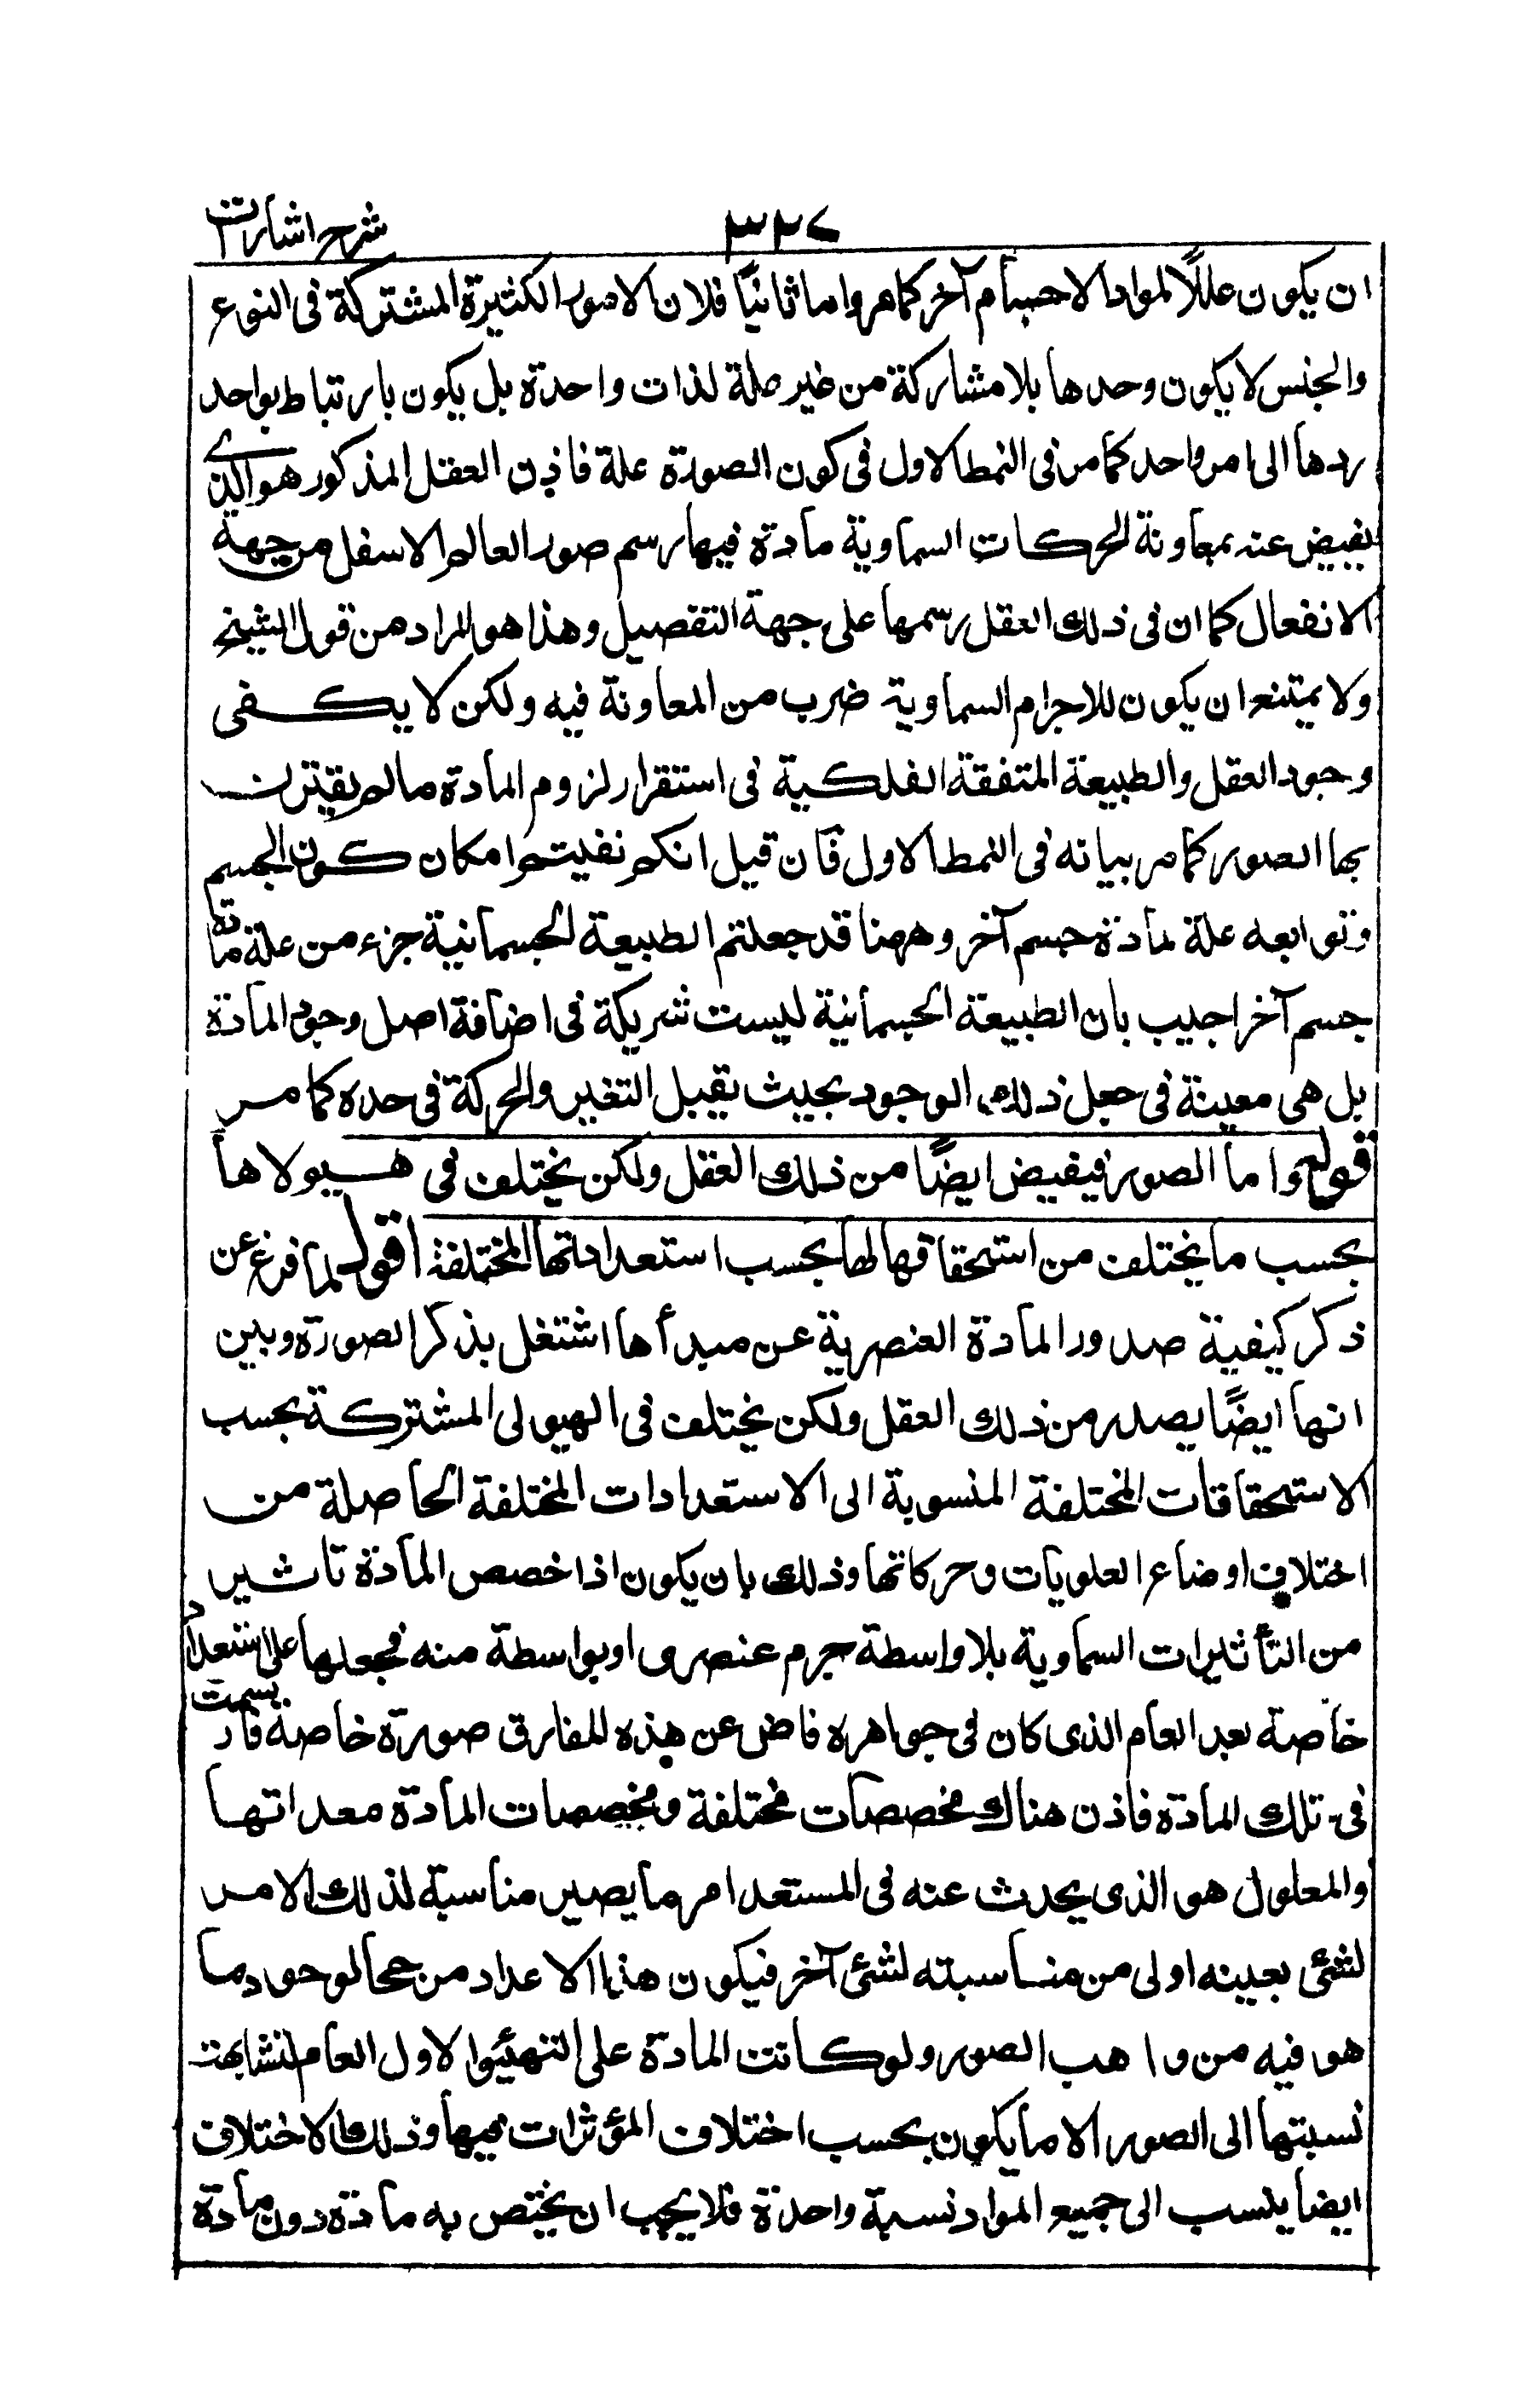 شرح اشارات
ان يكون عللًا لمواد الاجسام آخر كما مر واما ثانيًا فلان الامور الكثيرة المشتركة فى النوع
والجنس لا يكون وحدها بلا مشاركة من غير علة لذات واحدة بل يكون بارتباط بواحد
يردها الى امر واحد كما مر فى النمط الاول فى كون الصورة علة فاذن العقل المذكور هو الذى
يفيض عنه بمعاونة الحركات السماوية مادة فيها رسم صور العالم الاسفل من جهة
الانفعال كما ان فى ذلك العقل رسمها على جهة التفصيل وهذا هو المراد من قول الشيخ
ولا يمتنع ان يكون للاجرام السماوية ضرب من المعاونة فيه ولكن لا يكفى
وجود العقل والطبيعة المتفقة الفلكية فى استقرار لزوم المادة مالم يقترن
بها الصور كما مر بيانه فى النمط الاول فان قيل انكم نفيتم امكان كون الجسم
وتوابعه علة لمادة جسم آخر وههنا قد جعلتم الطبيعة الجسمانية جزء من علة مادة
جسم آخر اجيب بان الطبيعة الجسمانية ليست شريكة فى اضافة اصل وجود المادة
بل هى معينة فى جعل ذلك الوجود بحيث يقبل التغير والحركة فى حده كما مر
قوله واما الصور فيفيض ايضًا من ذلك العقل ولكن يختلف فى هيولاها
بحسب ما يختلف من استحقاقها لها بحسب استعداداتها المختلفة اقول لما فرغ عن
ذكر كيفية صدور المادة العنصرية عن مبدأها اشتغل بذكر الصورة وبين
انها ايضًا يصدر من ذلك العقل ولكن يختلف فى الهيولى المشتركة بحسب
الاستحقاقات المختلفة المنسوبة الى الاستعدادات المختلفة الحاصلة من
اختلاف اوضاع العلويات وحركاتها وذلك بان يكون اذا خصص المادة تاثير
من التأثيرات السماوية بلا واسطة جرم عنصرى او بواسطة منه فجعلها على استعداد
خاصة بعد العام الذى كان فى جواهره فاض عن هذه المفارق صورة خاصة فارتسمت
فى تلك المادة فاذن هناك مخصصات مختلفة ومخصصات المادة معداتها
والمعلول هو الذى يحدث عنه فى المستعد امر ما يصير مناسبة لذلك الامر
لشئ بعينه اولى من مناسبته لشئ آخر فيكون هذا الاعداد من جحا لوجود ما
هو فيه من واهب الصور ولو كانت المادة على التهيئو الاول العام لتشابهت
نسبتها الى الصور الا ما يكون بحسب اختلاف المؤثرات فيها وذلك الاختلاف
ايضا ينسب الى جميع المواد نسبة واحدة فلا يجب ان يختص به مادة دون مادة